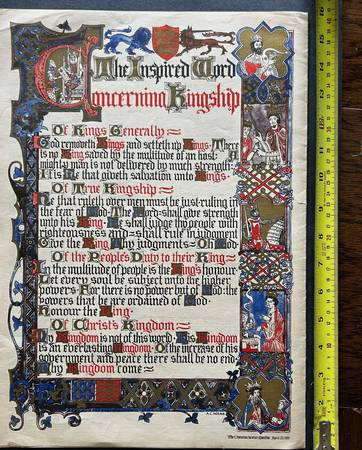 The Inspired Word
Concerning Kingship
Of Kings Generally
God removeth Kings and setteth up Kings · There
is no King saved by the multitude of an host: A
mighty man is not delivered by much strength:
It is He that giveth salvation unto Kings ·
Of True Kingship
He that ruleth over men must be just · ruling in
the fear of God · The Lord shall give strength
unto his King · He shall judge thy people with
righteousness and shall rule in judgment
Give the King thy judgments · Oh God ·
Of the People's Duty to their King
In the multitude of people is the King's honour ·
Let every soul be subject unto the higher
powers · For there is no power but of God: the
powers that be are ordained of God ·
Honour the King ·
Of Christ's Kingdom
My Kingdom is not of this world · His Kingdom
is an everlasting Kingdom · Of the increase of his
government and peace there shall be no end ·
Thy Kingdom come
The Christian Science Monitor April 23, 19